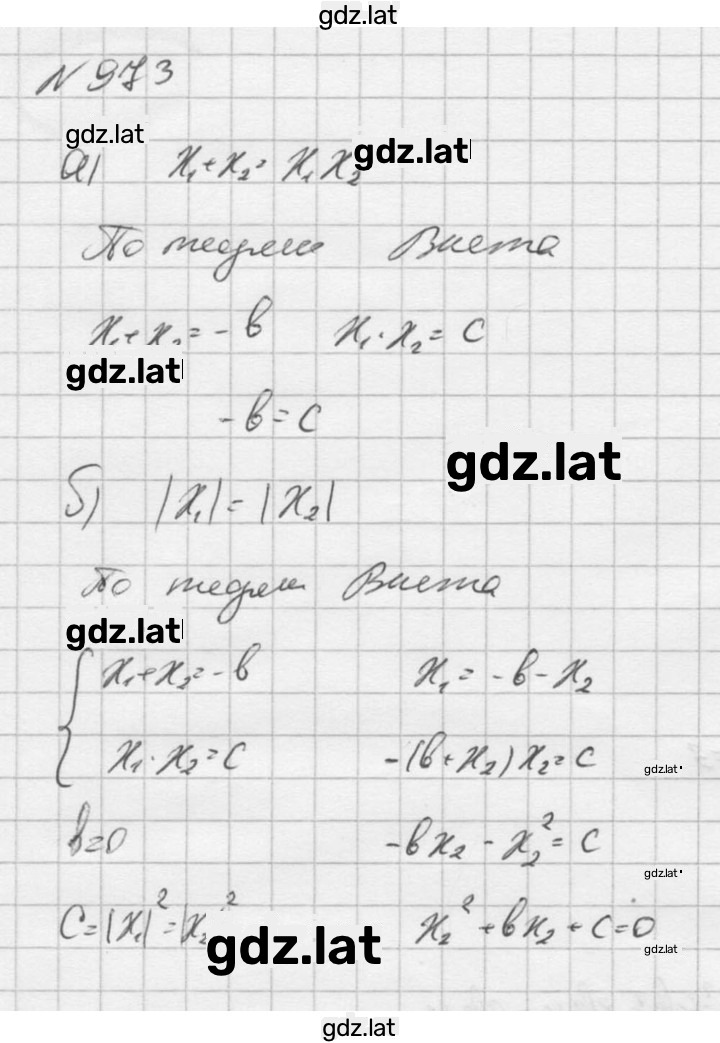 gdz.lat
N 973
gdz.lat
а) x₁+x₂= x₁x₂ gdz.lat
По теореме Виета
x₁+x₂=-b x₁·x₂=c
gdz.lat
-b=c
gdz.lat
б) |x₁|=|x₂|
По теореме Виета
gdz.lat
x₁+x₂=-b x₁=-b-x₂
x₁·x₂=c -(b+x₂)x₂=c
gdz.lat
b=0 -bx₂-x₂²=c
gdz.lat
c=|x₁|²=|x₂|² x₂²+bx₂+c=0
gdz.lat
gdz.lat
gdz.lat